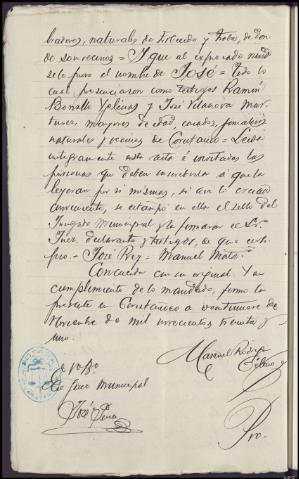 naturales de y de don
de son vecinos = Y que al expresado niño
se le puso el nombre de José = todo lo
cual presenciaron como testigos Ramón
Iglesias y José Villanova Mar
tinez, mayores de edad, casados, jornaleros
naturales y vecinos de = Leida
integramente esta acta é invitadas las
personas que deben suscribirla á que la
leyeran por si mismas, si asi lo creian
conveniente, se estampó en ella el sello del
Juzgado municipal y la firmaron el Sr.
Juez, declarante y testigos, de que certi
fico.- José Rey = Manuel
Concuerda con su original. Y en
cumplimiento de lo mandado, firmo la
presente en á veintinueve de
Noviembre de mil novecientos treinta y
uno.
Manuel
Vº Bº
El Juez municipal
José